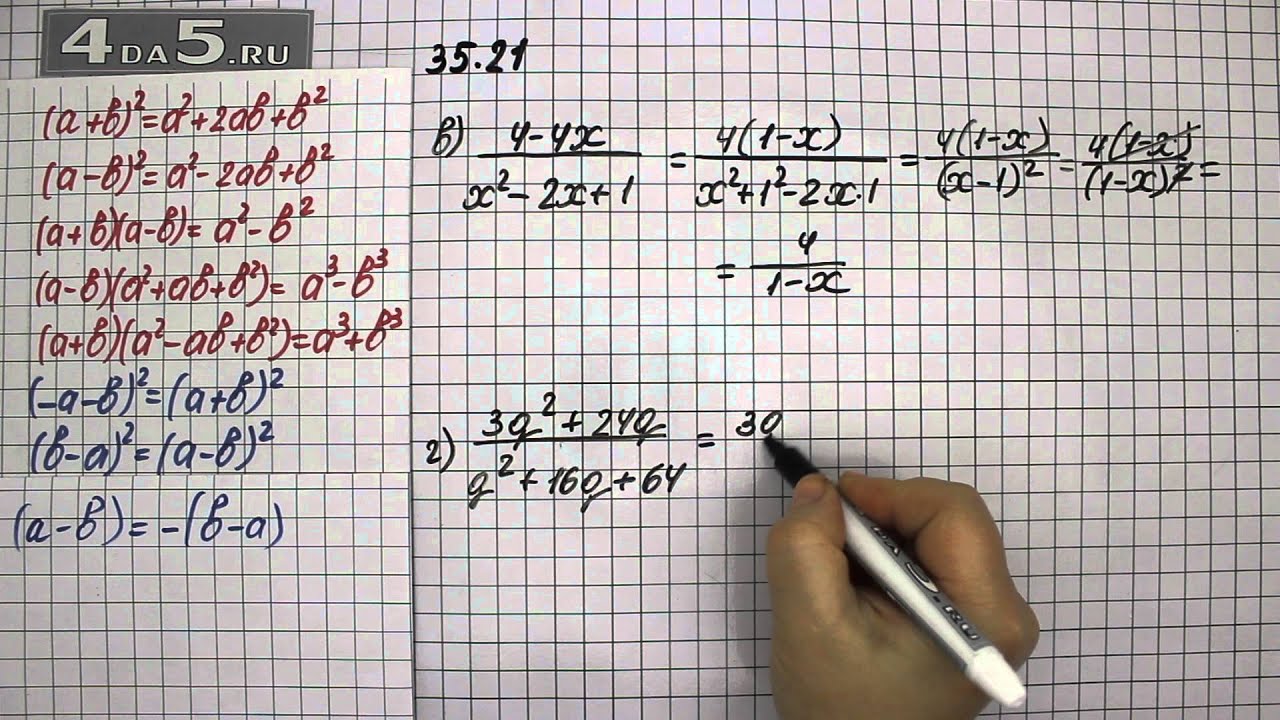 4DA5.RU
35.21
(a+b)²=a²+2ab+b²
(a-b)²=a²-2ab+b²
(a+b)(a-b)=a²-b²
(a-b)(a²+ab+b²)=a³-b³
(a+b)(a²-ab+b²)=a³+b³
(-a-b)²=(a+b)²
(b-a)²=(a-b)²
(a-b)=-(b-a)
в) (4-4x)/(x²-2x+1) = 4(1-x)/(x²+1²-2x·1) = 4(1-x)/(x-1)² = 4(1-x)¹/(1-x)² =
= 4/(1-x)
г) (3q²+24q)/(q²+16q+64) = 3q
5.RU